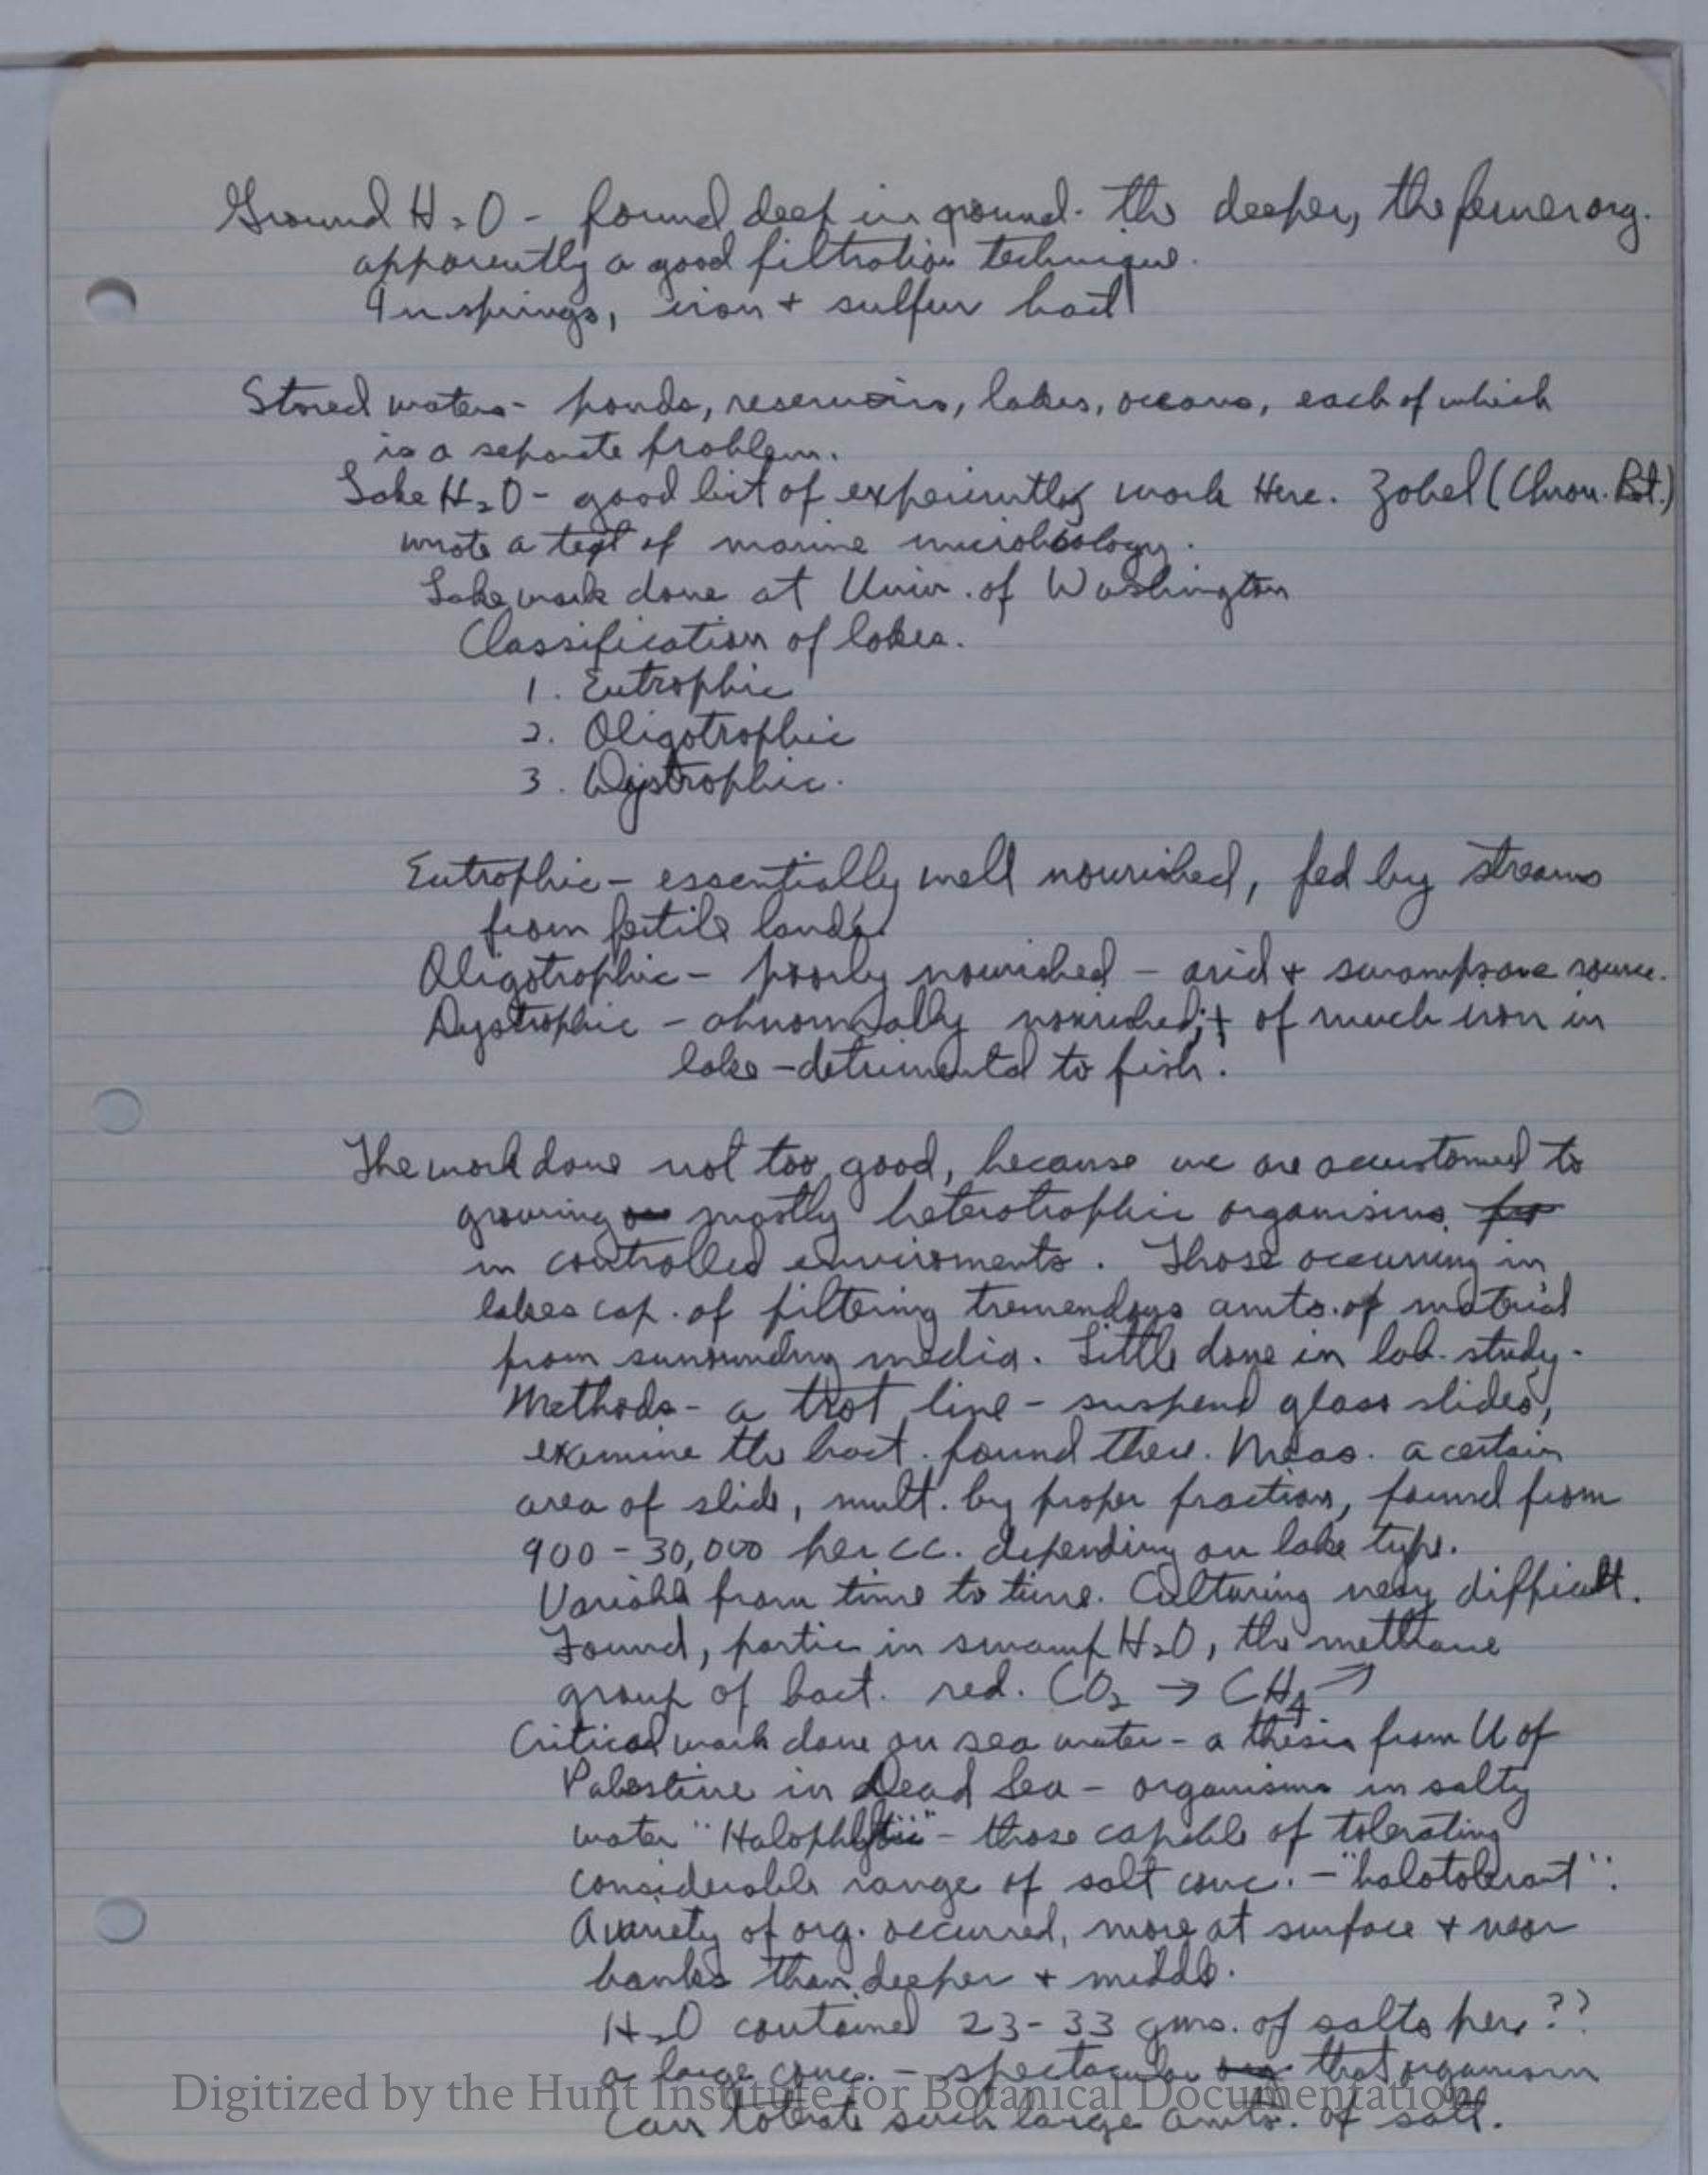 Ground H₂O - found deep in ground. The deeper, the fewer org.
apparently a good filtration technique.
In springs, iron + sulfur bact
Stored waters - ponds, reservoirs, lakes, oceans, each of which
is a separate problem.
Lake H₂O - good bit of work Here. Zobel (Chron. Bot.)
wrote a text of marine microbiology.
Lake work done at Univ. of Washington
Classification of lakes.
1. Eutrophic
2. Oligotrophic
3. Dystrophic.
Eutrophic - essentially well nourished, fed by streams
from fertile lands.
Oligotrophic - poorly nourished - arid + swamps are source.
Dystrophic - abnormally nourished; + of much iron in
lake - detrimental to fish.
The work done not too good, because we are accustomed to
growing mostly heterotrophic organisms
in controlled enviroments. Those occurring in
lakes cap. of filtering tremendous amts. of material
from surrounding media. Little done in lab. study.
Methods - a trot line - suspend glass slides,
examine the bact. found there. Meas. a certain
area of slide, mult. by proper fraction, found from
900 - 30,000 per cc. depending on lake type.
Variable from time to time. Culturing very difficult.
Found, partic in swamp H₂O, the methane
group of bact. red. CO₂ → CH₄ ↗
Critical work done on sea water - a thesis from U of
Palestine in Dead Sea - organisms in salty
water "Halophytic" - those capable of tolerating
considerable range of salt conc. - "halotolerant".
A variety of org. occurred, more at surface + near
banks than deeper + middle.
H₂O contained 23 - 33 gms. of salts per ??
a large conc. - spectacular that organism
can tolerate such large amts. of salt.
Digitized by the Hunt Institute for Botanical Documentation